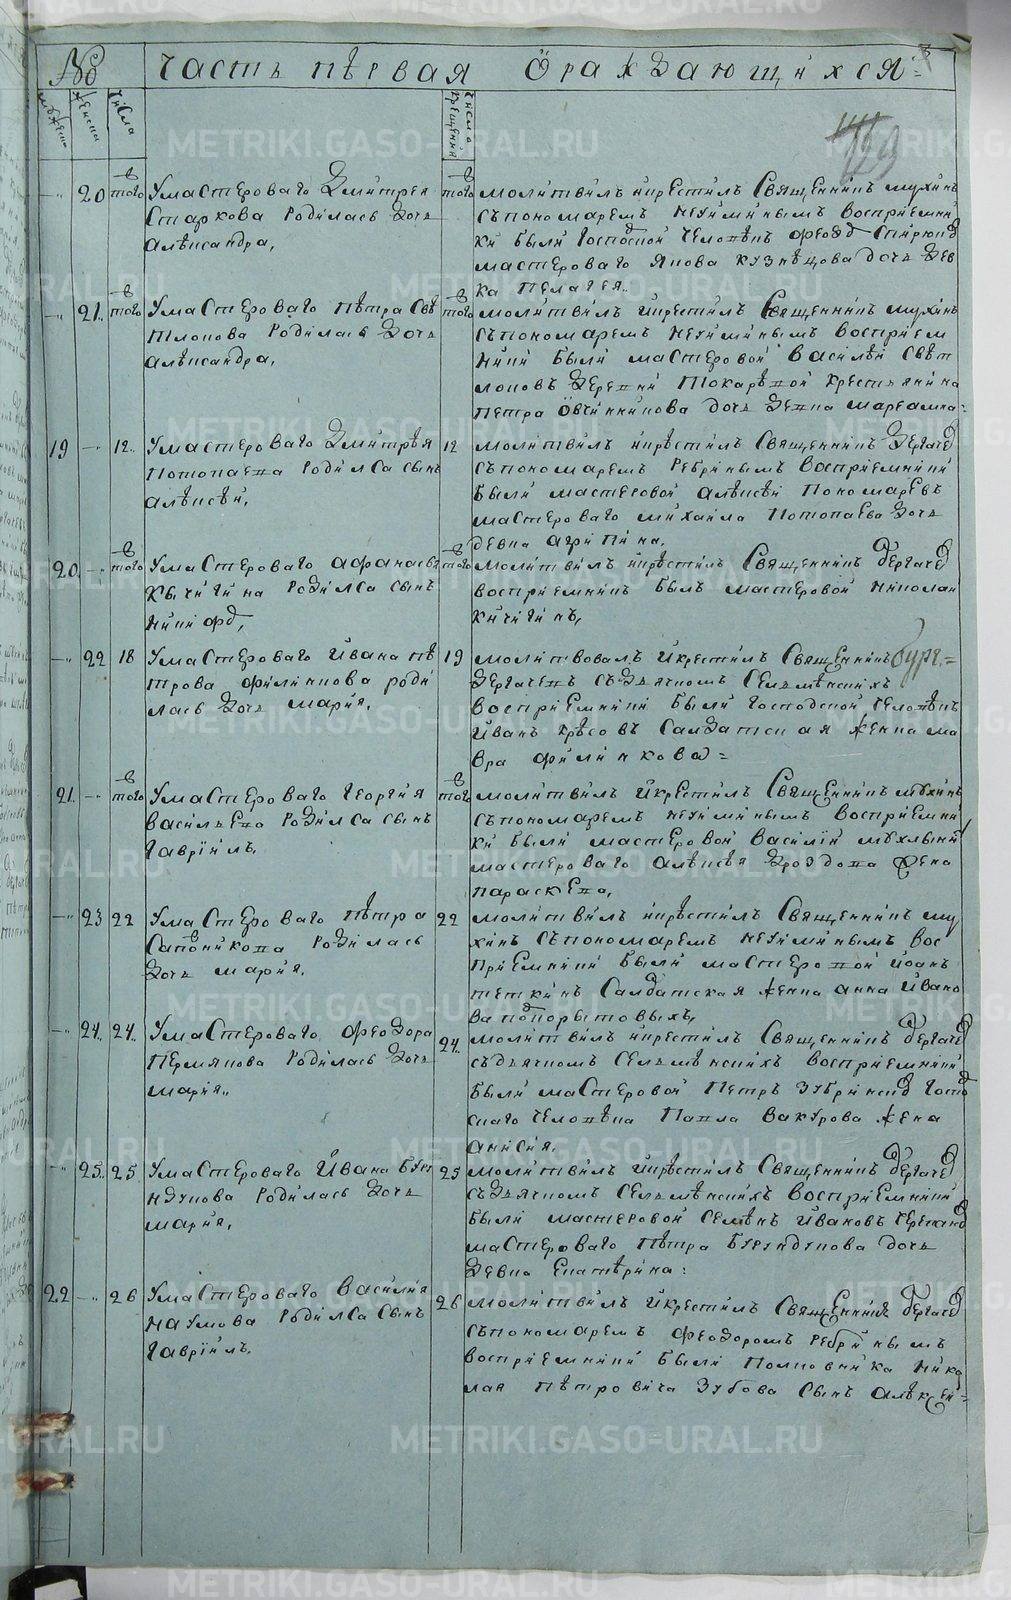 № Часть пѣрвая Ѻраждающихся
мꙋжеска
женска
числа
числа крещенія
129
20 в того
Умастероваго Дмитрея
Старкова родилась дочь
алѣксандра,
в того
молитвилъ икрестилъ Священникъ мухинъ
съпономаремъ
ки были Господской человѣкъ
мастероваго Якова кузнѣцова дочь дев
ка пелагея..
21. в того
Умастероваго пѣтра Свѣ
тлокова родилась дочь
алѣксандра,
в того
молитвилъ икрестилъ Священникъ мухинъ
съпономаремъ восприем
ники были мастеровой василѣй свѣт
локовъ деревни токарѣвой крестьянина
петра Ѻвчинникова дочь девка мареамна
19 12.
Умастероваго Дмитрѣя
потопаева родился сынъ
алѣксѣй,
12
молитвилъ икрѣстилъ Священникъ Дергачевъ
съпономаремъ ребринымъ восприемники
были мастеровой алѣксѣй пономаревъ
мастероваго михаила потопаева дочь
девка агрипина,
20. в того
Умастероваго афанасья
кычигина родился сынъ
никифоръ,
в того
молитвилъ икрѣстилъ Священникъ дергачевъ
восприемникъ былъ мастеровой николай
кичигинъ,
22 18
Умастероваго ивана пѣ
трова филинкова роди
лась дочь мария,
19
молитвовалъ икрестилъ Священникъ
дергачевъ съдьячкомъ Селмѣнскихъ
восприемники были господской человѣкъ
иванъ Салдатская женка ма
вра филинкова
21. в того
Умастероваго георгия
василъева родился сынъ
гавріилъ,
в того
молитвилъ икрестилъ Священникъ мухинъ
съпономаремъ восприемни
ки были мастеровой василій
мастероваго алѣксѣя дроздова жена
параскева,
23 22
Умастероваго пѣтра
Сапожникова родилась
дочь мария,
22
молитвилъ икрѣстилъ Священникъ му
хинъ съпономаремъ вос
приемники были мастеровой иванъ
теткинъ Салдатская женка анна ивано
ва
24. 24.
Умастероваго феодора
пермякова родилась дочь
мария..
24.
молитвилъ икрестилъ Священникъ дергачевъ
съдьячкомъ Селмѣнскихъ восприемники
были мастеровой петръ зубринской госпо
скаго человѣка павла вакурова жена
анисия,
25. 25
Умастероваго ивана бурн
ндукова родилась дочь
мария,
25
молитвилъ икрѣстилъ Священникъ дергачевъ
съдьячкомъ Селмѣнскихъ восприемники
были мастеровой Семѣнъ ивановъ
мастероваго пѣтра бурундукова дочь
девка екатѣрина:
22 26
Умастероваго василия
наумова родился сынъ
гавріилъ,
26
молитвилъ икрестилъ Священникъ дергачевъ
съпономаремъ феодоромъ ребринымъ
восприемники были полковника нико
лая пѣтровича зубова сынъ алѣксѣй